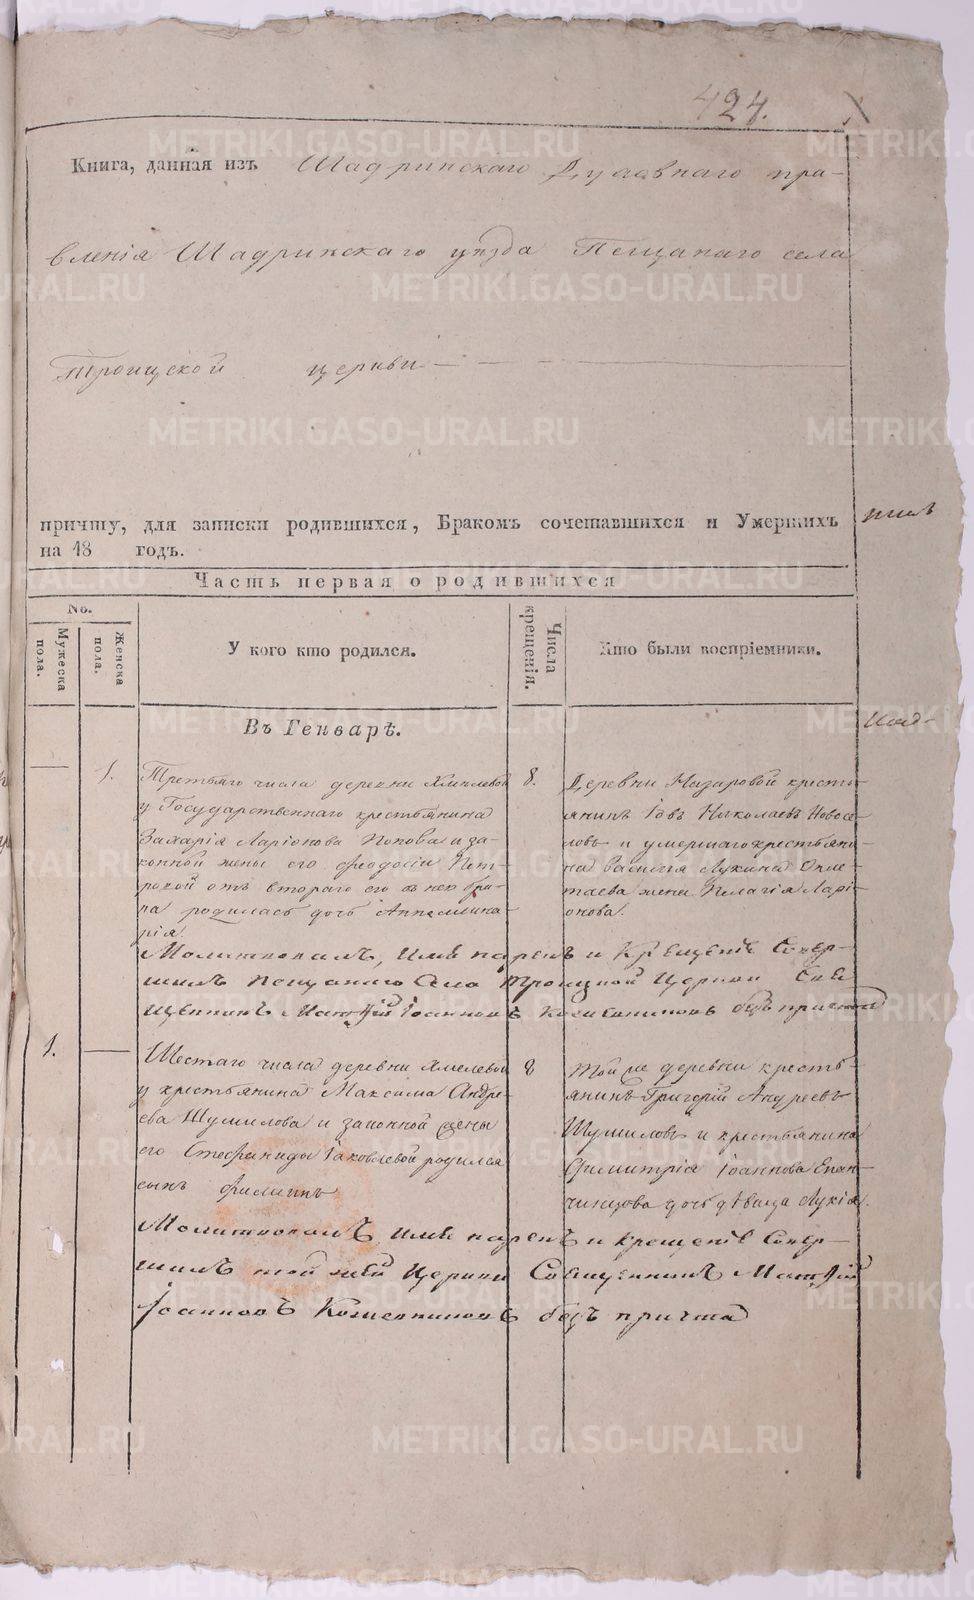 424.
Книга, данная изъ Шадринскаго Духовнаго пра-
вленія Шадринскаго уѣзда Песчанаго села
Троицкой церкви
причту, для записки родившихся, Бракомъ сочетавшихся и Умершихъ
на 18 годъ.
Часть первая о родившихся
No.
Мужеска пола.
Женска пола.
У кого кто родился.
Числа крещенія.
Кто были воспріемники.
Въ Генварѣ.
1.
Третьяго числа деревни Хмелевой
у Государственнаго крестьянина
Захарія Ларіонова Попова и за-
конной жены его Феодосіи Пет-
ровой отъ втораго его съ нею бра-
ка родилась дочь Апполлина-
рія.
8.
Деревни Назаровой кресть-
янинъ Іовъ Николаевъ Новосе-
ловъ и умершаго крестьяни-
на Василія Лукина
жена Пелагія Ларі-
онова.
Молитвовалъ, имя нарекъ и Крещеніе Совер-
шилъ Песчанаго Села Троицкой Церкви Свя
щенникъ Матѳій Іоанновъ Кожевниковъ безъ причта
1.
Шестаго числа деревни Хмелевой
у крестьянина Максима Андре-
ева Шумилова и законной жены
его Стефаниды Іаковлевой родился
сынъ Филиппъ
8
Той же деревни кресть-
янинъ Григорій Андреевъ
Шумиловъ и крестьянина
Димитрія Іоаннова Епан-
чинцова дочь дѣвица Лукія.
Молитвовалъ, имя нарекъ и крещеніе Совер-
шилъ той же Церкви Священникъ Матѳій
Іоанновъ Кожевниковъ безъ причта
METRIKI.GASO-URAL.RU